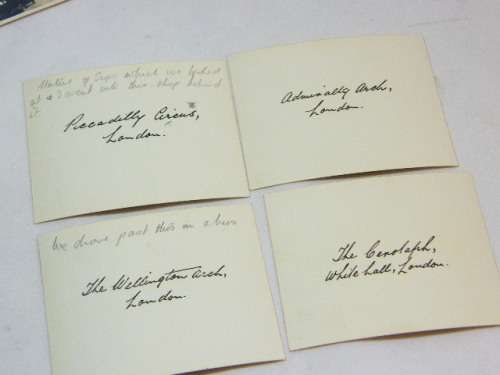 Statue of Eros which we looked
at & I went into this shop behind
it.
Piccadilly Circus,
London.
Admiralty Arch,
London.
We drove past this in a bus
The Wellington Arch,
London.
The Cenotaph,
Whitehall, London.